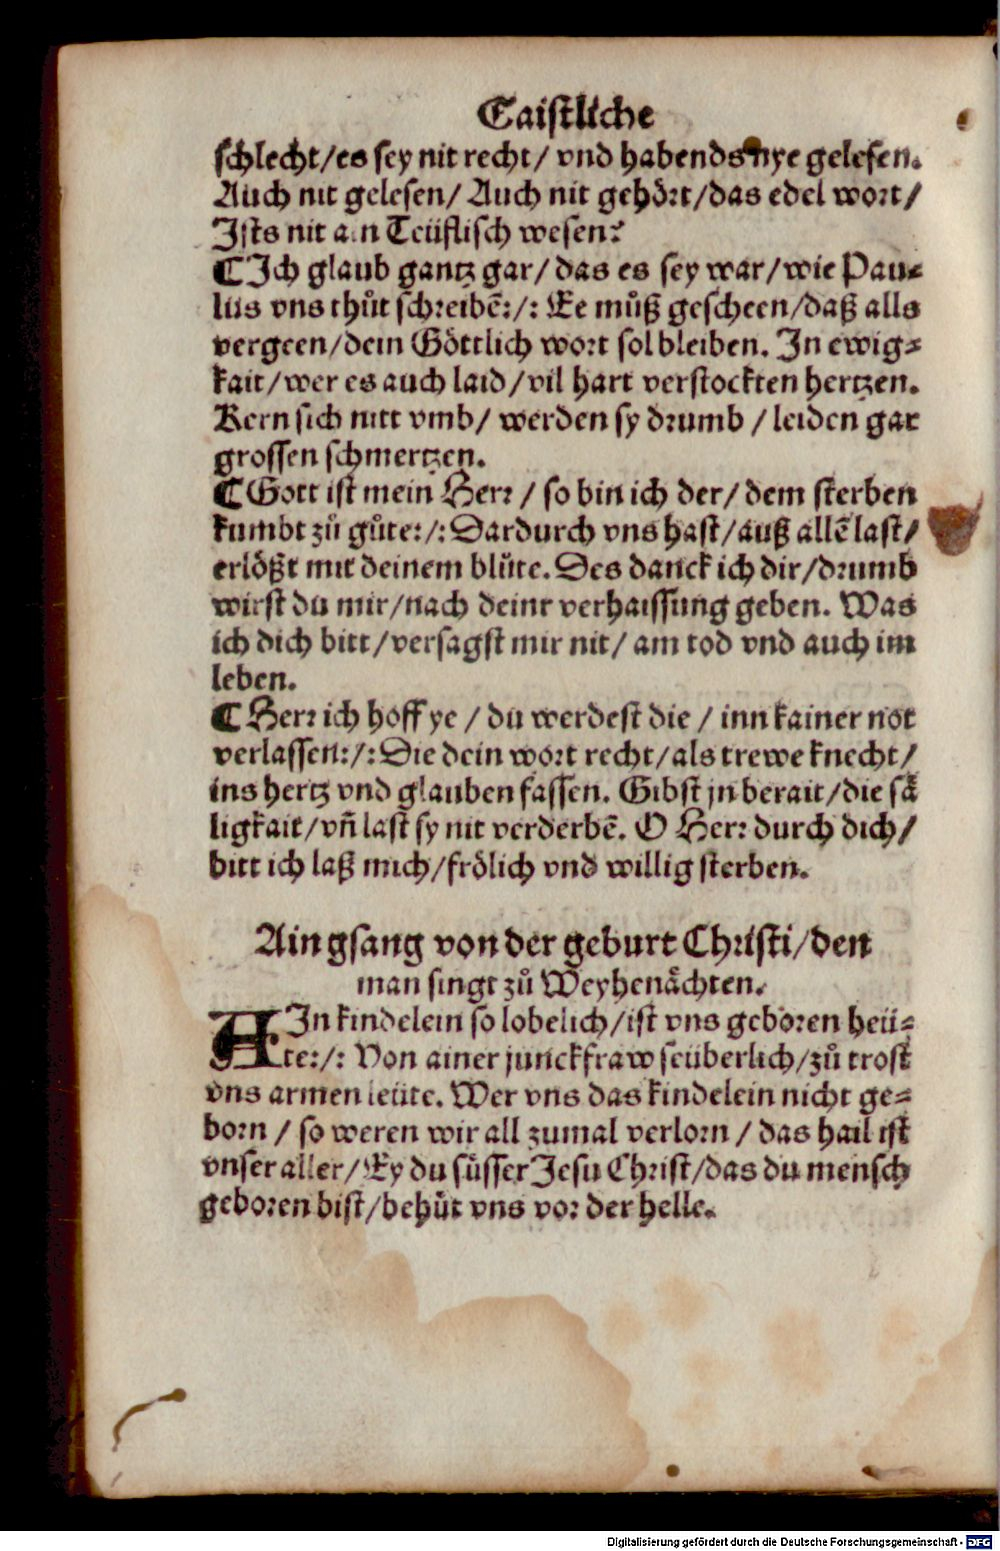 Gaistliche
schlecht/es sey nit recht/ vnd habends nye gelesen.
Auch nit gelesen/ Auch nit gehört/das edel wort/
Ists nit ain Teüflisch wesen?
¶Ich glaub gantz gar/ das es sey war/wie Pau⸗
lus vns thůt schreibẽ:/: Ee můß gescheen/daß alls
vergeen/dein Göttlich wort sol bleiben. In ewig⸗
kait/wer es auch laid/vil hart verstockten hertzen.
Kern sich nitt vmb/ werden sy drumb / leiden gar
grossen schmertzen.
¶Gott ist mein Herr / so bin ich der/ dem sterben
kumbt zů gůte:/:Dardurch vns hast/auß allẽ last/
erlößt mit deinem blůte. Des danck ich dir/drumb
wirst du mir/nach deinr verhaissung geben. Was
ich dich bitt/versagst mir nit/ am tod vnd auch im
leben.
¶Herr ich hoff ye / du werdest die / inn kainer not
verlassen:/:Die dein wort recht/als trewe knecht/
ins hertz vnd glauben fassen. Gibst jn berait/die sä
ligkait/vñ last sy nit verderbẽ. O Herr durch dich/
bitt ich laß mich/frölich vnd willig sterben.
Ain gsang von der geburt Christi/den
man singt zů Weyhenächten.
AIn kindelein so lobelich/ist vns geboren heü⸗
te:/: Von ainer junckfraw seüberlich/zů trost
vns armen leüte. Wer vns das kindelein nicht ge⸗
born / so weren wir all zumal verlorn / das hail ist
vnser aller/Ey du süsser Jesu Christ/das du mensch
geboren bist/behüt vns vor der helle.
Digitalisierung gefördert durch die Deutsche Forschungsgemeinschaft - DFG